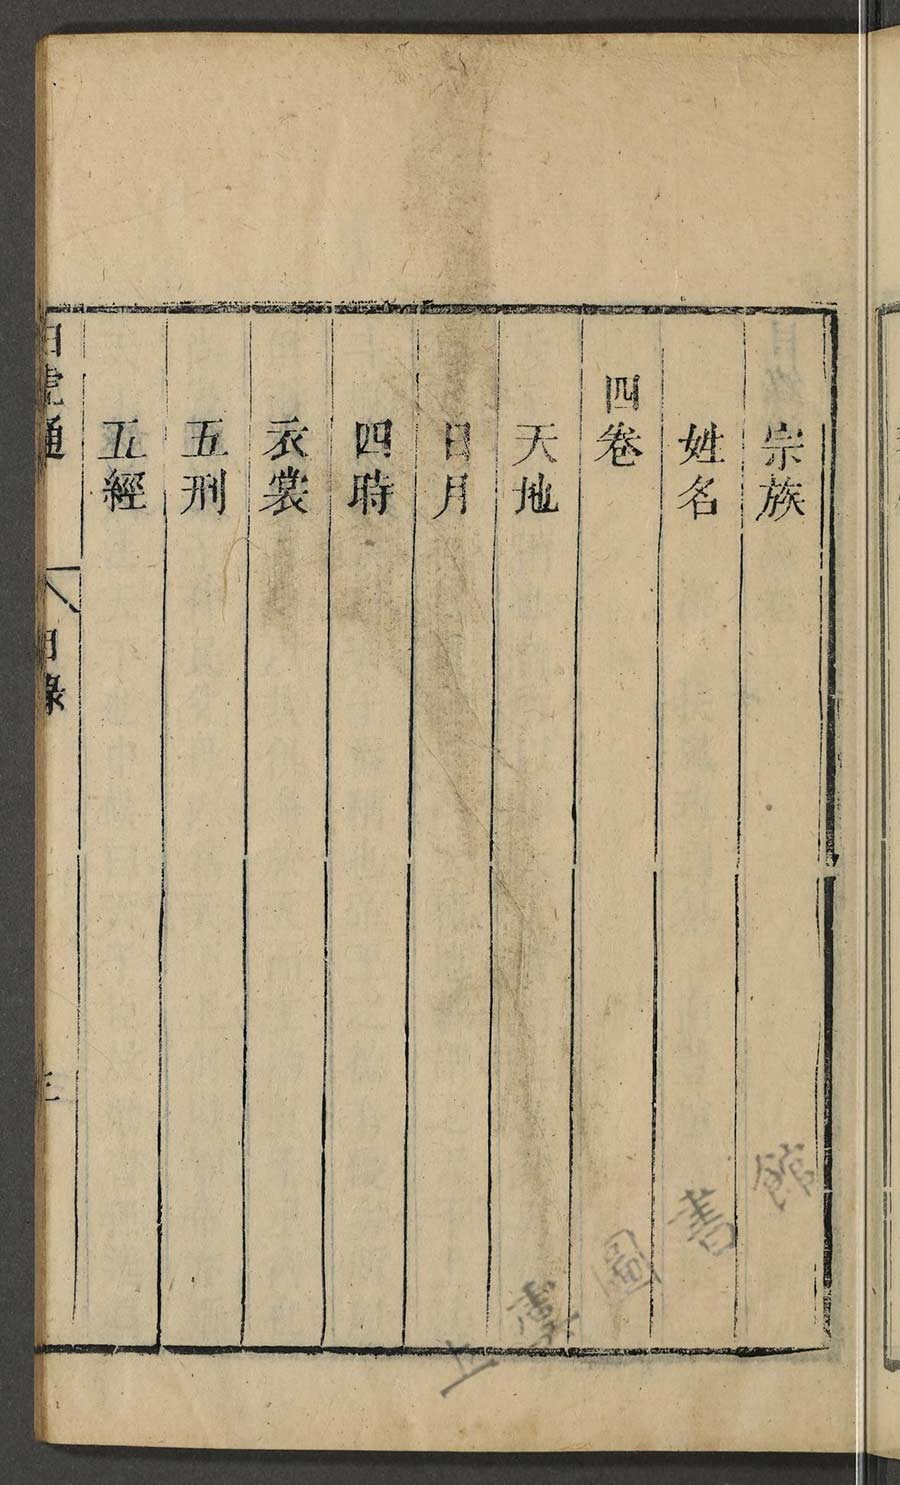 宗族
姓名
四卷
天地
日月
四時
衣裳
五刑
五經
白虎通
目錄
三
圖書館